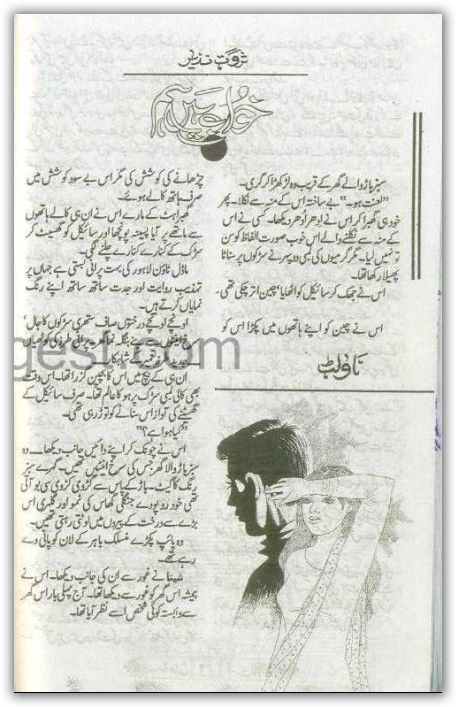 ثروت نذیر
خواب ہیں ہم
سبز باڑ والے گھر کے قریب وہ لڑکھڑا کر گری۔
”لعنت ہو۔“ بے ساختہ اس کے منہ سے نکلا۔ پھر
خود ہی گھبرا کر اس نے ادھر ادھر دیکھا۔ کسی نے اس
کے منہ سے نکلنے والے اس خوب صورت الفاظ کو سن
تو نہیں لیا۔ مگر گرمیوں کی بھی دوپہر نے سڑکوں پر سناٹا
پھیلا رکھا تھا۔
اس نے جھک کر سائیکل کو اٹھایا، چین اتر چکی تھی۔
اس نے چین کو اپنے ہاتھوں میں پکڑا اس کو
ناولٹ
چڑھانے کی کوشش کی مگر اس بے سود کوشش میں
صرف ہاتھ کالے ہوئے۔
گھبراہٹ کے مارے اس نے ان ہی کالے ہاتھوں
سے ماتھے پر آیا پسینہ پونچھا اور سائیکل کو گھسیٹ کر
سڑک کے کنارے کنارے چلنے لگی۔
ماڈل ٹاؤن لاہور کی بہت پرانی بستی ہے جہاں پر
تہذیب روایت اور جدت ساتھ ساتھ اپنے رنگ
نمایاں کرتے ہیں۔
اونچے اونچے درختوں صاف ستھری سڑکوں کا جال‘
سرخ اینٹوں سے بنے بنگلہ نما گھر۔ پرانی طرز کی کوٹھیاں
جدید طرز تعمیر کے شاہکار
gest.com
ان ہی کے بیچ میں اس کا بچپن گزرا تھا۔ اس وقت
بھی کالی لمبی سڑک پر ہو کا عالم تھا۔ صرف سائیکل کے
گھسٹنے کی آواز اس سناٹے کو توڑ رہی تھی۔
”کیا ہوا ہے؟“
اس نے چونک کر اپنے دائیں جانب دیکھا۔ وہ
سبز باڑ والا گھر جس کی سرخ اینٹیں تھیں۔ گہرے سبز
رنگ کا گیٹ۔ باڑ کے پاس سے کڑوی کڑوی سی بو آتی
تھی خود رو پودے جنگلی گھاس کی نمو اور گلہری اس
بڑے سے درخت کے پیروں میں لوٹتی رہتی تھیں۔
وہ پائپ پکڑے منسلک باہر کے لان کو پانی دے
رہے تھے۔
نے غور سے ان کی جانب دیکھا۔ اس نے
ہمیشہ اس گھر کو غور سے دیکھا تھا۔ آج پہلی بار اس گھر
سے وابستہ کوئی شخص اسے نظر آیا تھا۔